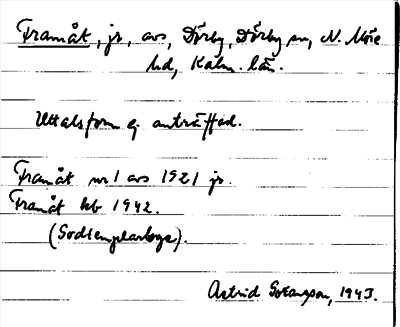 Framåt, jr, avs, Dörby, Dörby sn, N. Möre
hd, Kalm. län.
Uttalsform ej anträffad.
Framåt nr 1 avs 1921 jr.
Framåt kb 1942.
(Godtemplarloge).
Astrid Göransson, 1943.